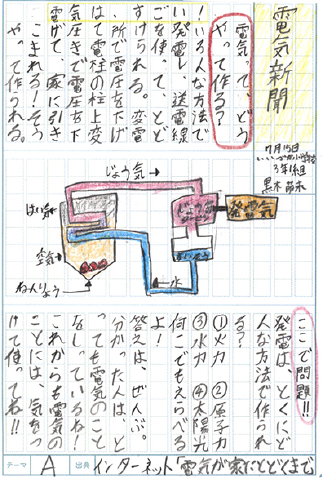 電気新聞
7月15日
小学校
3年1組
黒木
電気って、どう
やって作る?
いろんな方法で
発電し、送電線
を使って、とど
けられる。変電
所で電圧を下げ
て電柱の柱上変
圧きで電圧を下
げて、家に引き
こまれる!そう
やって作られる。
じょう気
はい分
空気
ねんりょう
水
発電気
ここで問題!!
発電は、とくにど
んな方法で作られ
る?
①火力 ②原子力
③水力 ④太陽光
何こでもえらべる
よ!
答えは、ぜんぶ。
分かった人は、と
っても電気のこと
なしっているね!
これからも電気の
ことには、気をつ
けて使ってね!!
テーマ A 出典 インターネット「電気が家にとどくまで